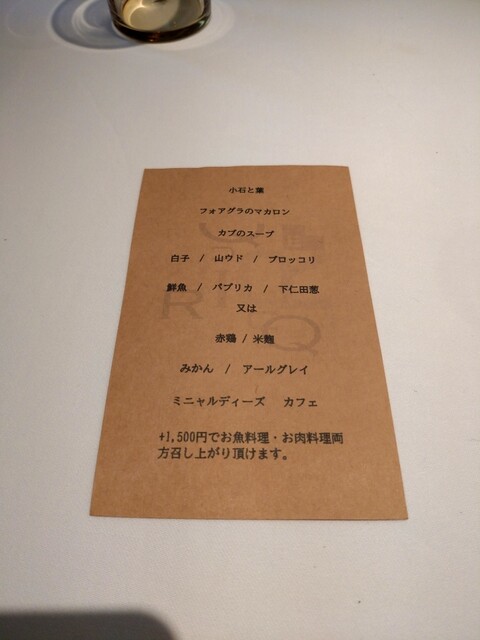 小石と藁
フォアグラのマカロン
カブのスープ
白子 / 山ウド / ブロッコリ
鮮魚 / パプリカ / 下仁田葱
又は
赤鶏 / 米麹
みかん / アールグレイ
ミニャルディーズ カフェ
+1,500円でお魚料理・お肉料理両
方召し上がり頂けます。